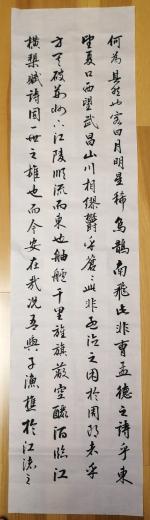 何为其然也客曰月明星稀烏鵲南飛此非曹孟德之诗乎東
望夏口西望武昌山川相缪鬱乎蒼蒼此非孟德之困於周郎者乎
方其破荊州下江陵順流而東也舳艫千里旌旗蔽空釃酒临江
横槊賦诗固一世之雄也而今安在哉況吾與子漁樵於江渚之